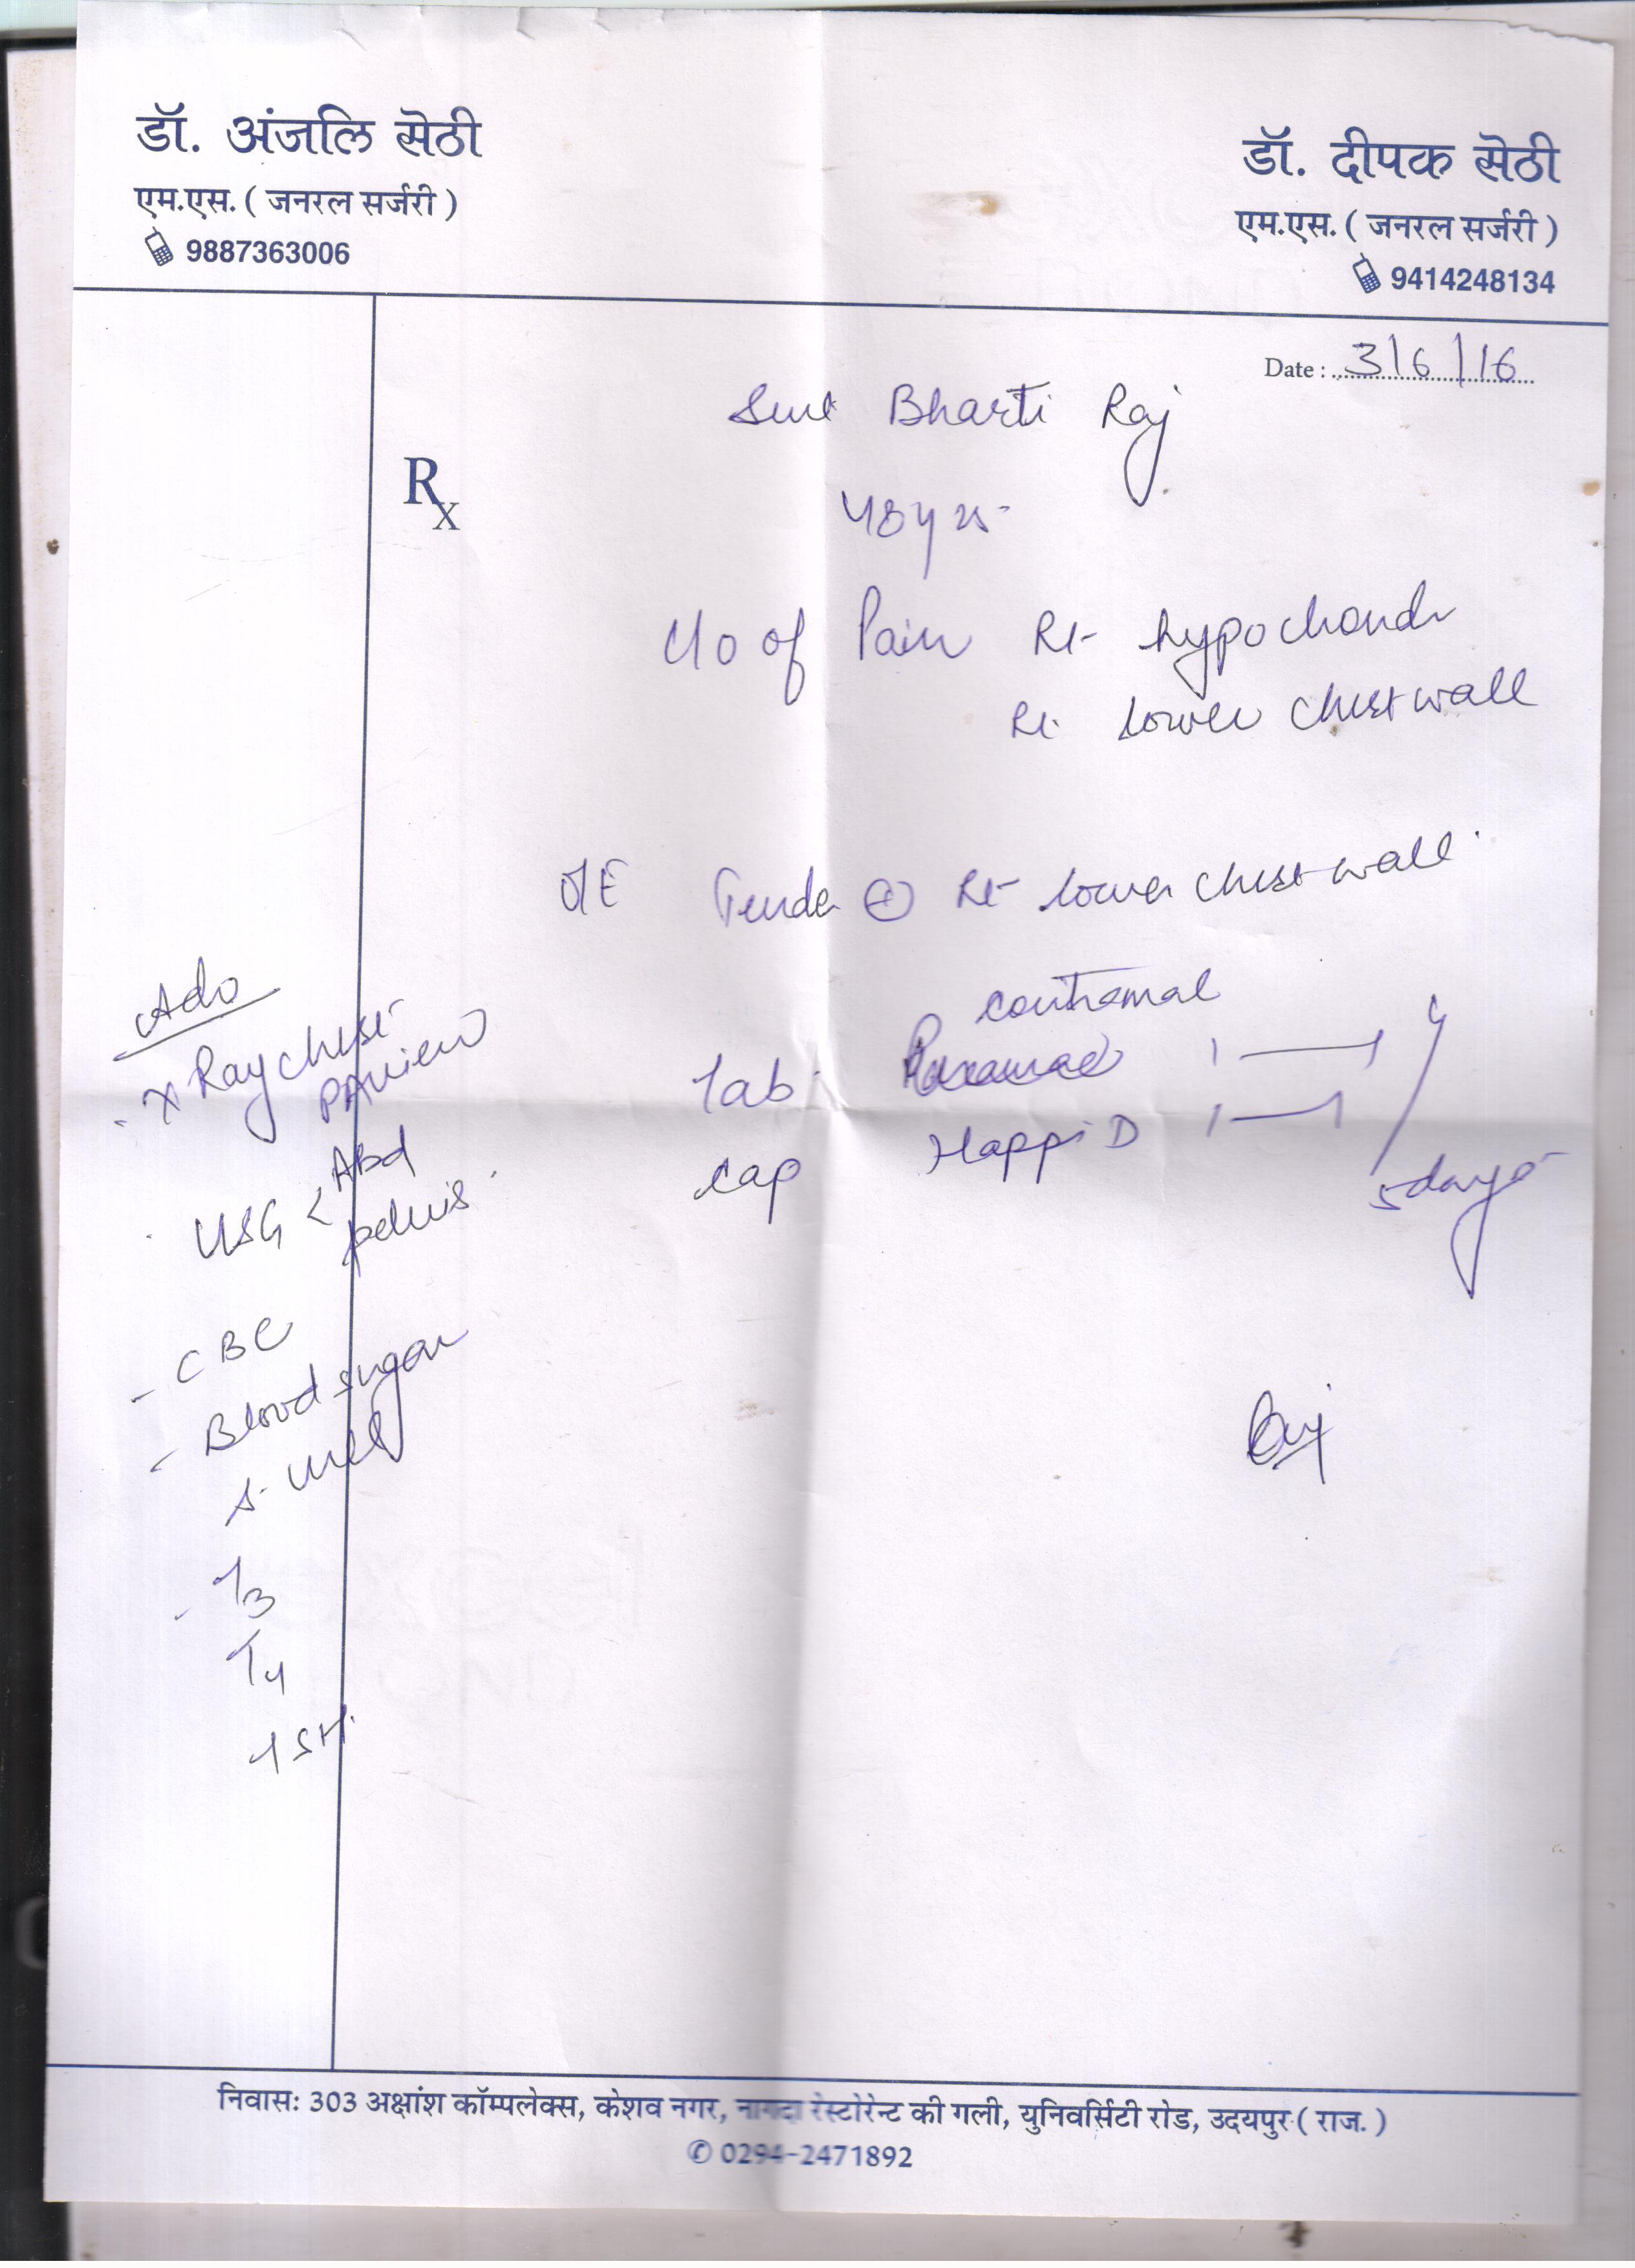 डॉ. अंजलि सेठी
एम.एस. ( जनरल सर्जरी )
9887363006
डॉ. दीपक सेठी
एम.एस. ( जनरल सर्जरी )
9414248134
Date : 3/6/16
Smt Bharti Raj
Rx
48 yrs
C/o of Pain Rt- hypochondr
Rt. lower chest wall
O/E Tender ⊕ Rt- lower chest wall
contramal
Tab. 1—1
Cap Happi D 1—1
5 days
Adv
- X Ray chest
PA view
USG < Abd
pelvis
- CBC
- Blood sugar
S. urea
- T3
T4
TSH
निवास: 303 अक्षांश कॉम्पलेक्स, केशव नगर, नागदा रेस्टोरेन्ट की गली, युनिवर्सिटी रोड, उदयपुर ( राज. )
✆ 0294-2471892